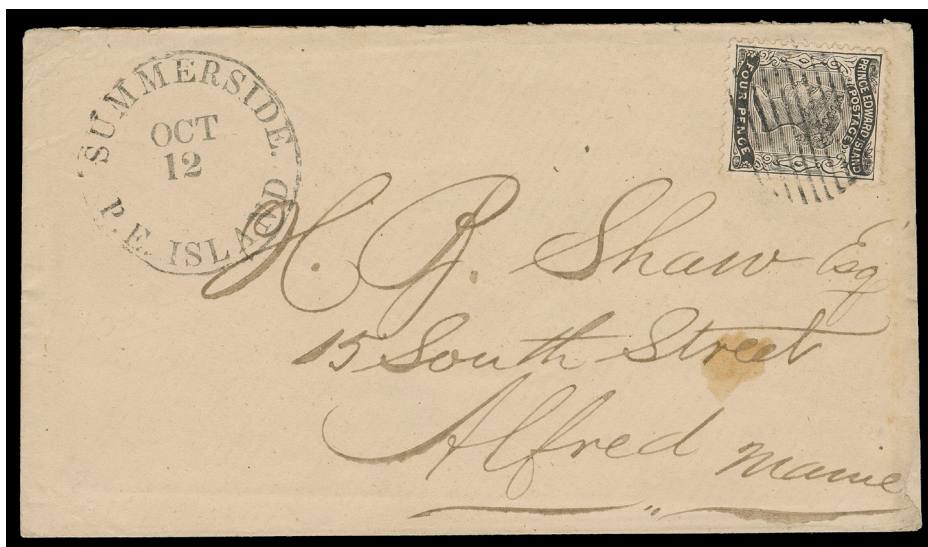 SUMMERSIDE.
OCT
12
P.E. ISLAND
PRINCE EDWARD ISLAND
POSTAGE
FOUR PENCE
H. B. Shaw Esq
15 South Street
Alfred Maine